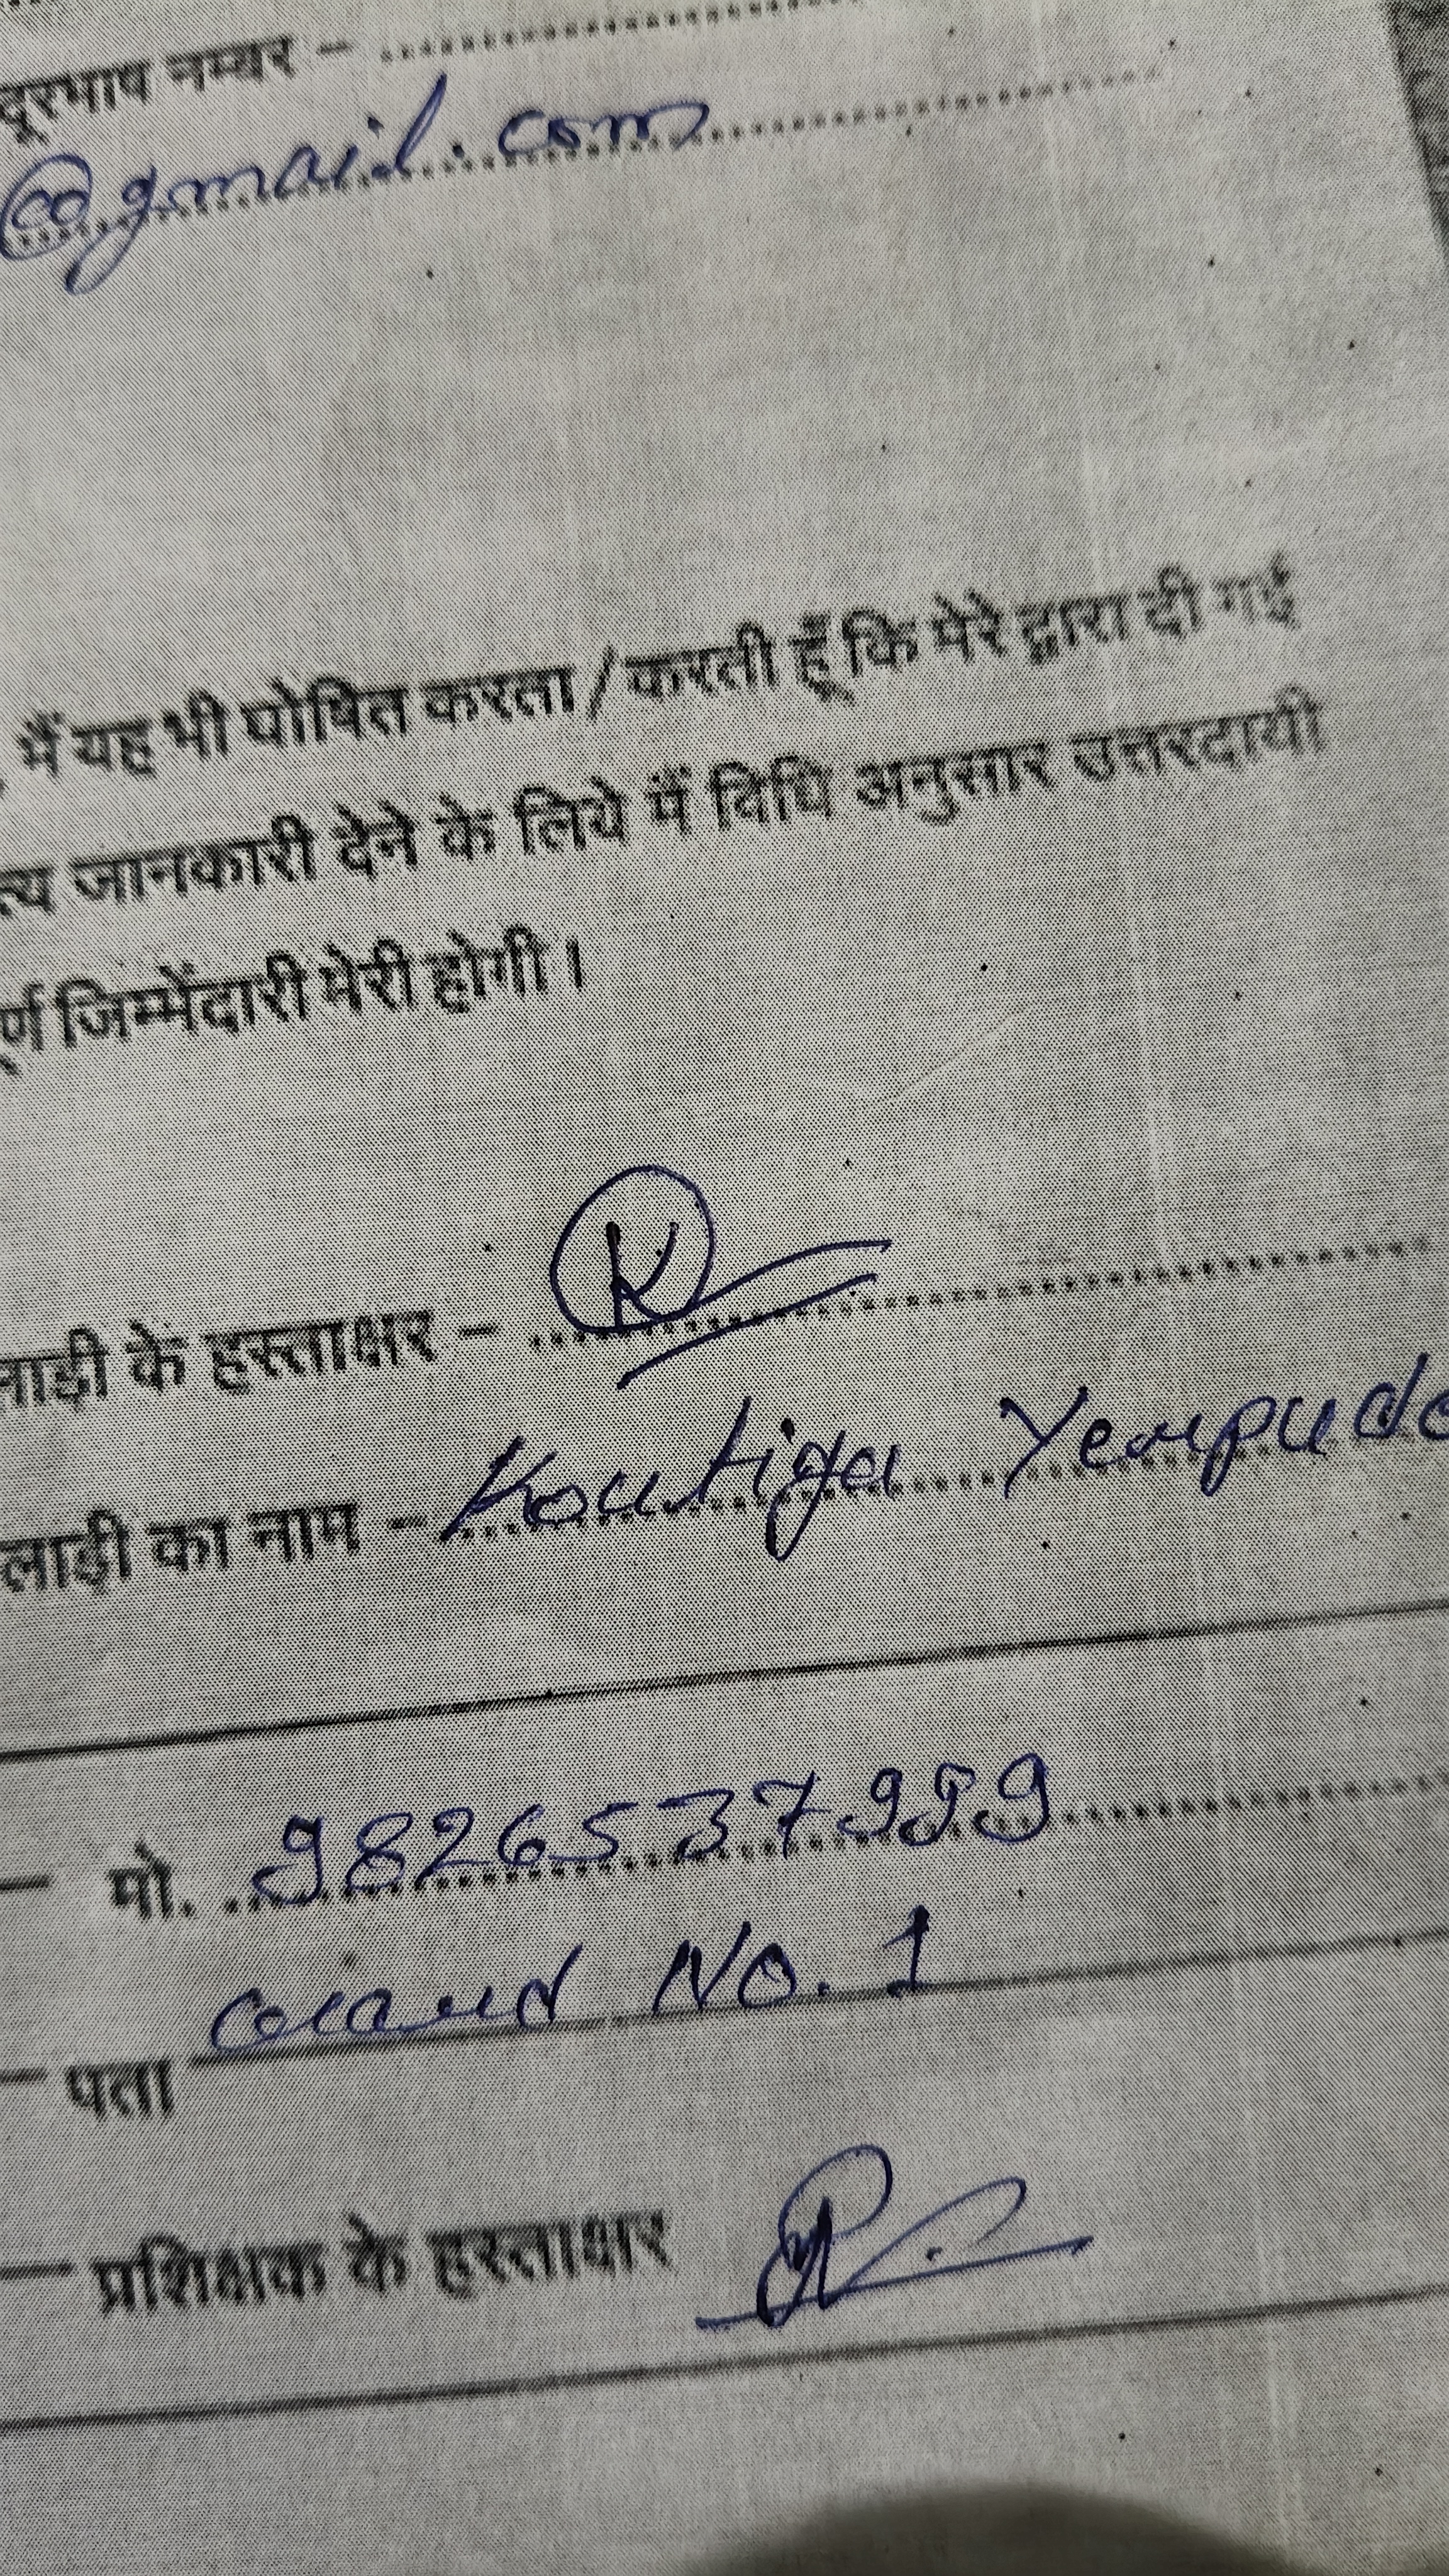 दूरभाष नम्बर –
@gmail.com
मैं यह भी घोषित करता / करती हूँ कि मेरे द्वारा दी गई
त्य जानकारी देने के लिये मैं विधि अनुसार उत्तरदायी
र्ण जिम्मेंदारी मेरी होगी।
लाड़ी के हस्ताक्षर – K
लाड़ी का नाम –
मो. 9826537999
No. 1
पता
प्रशिक्षक के हस्ताक्षर